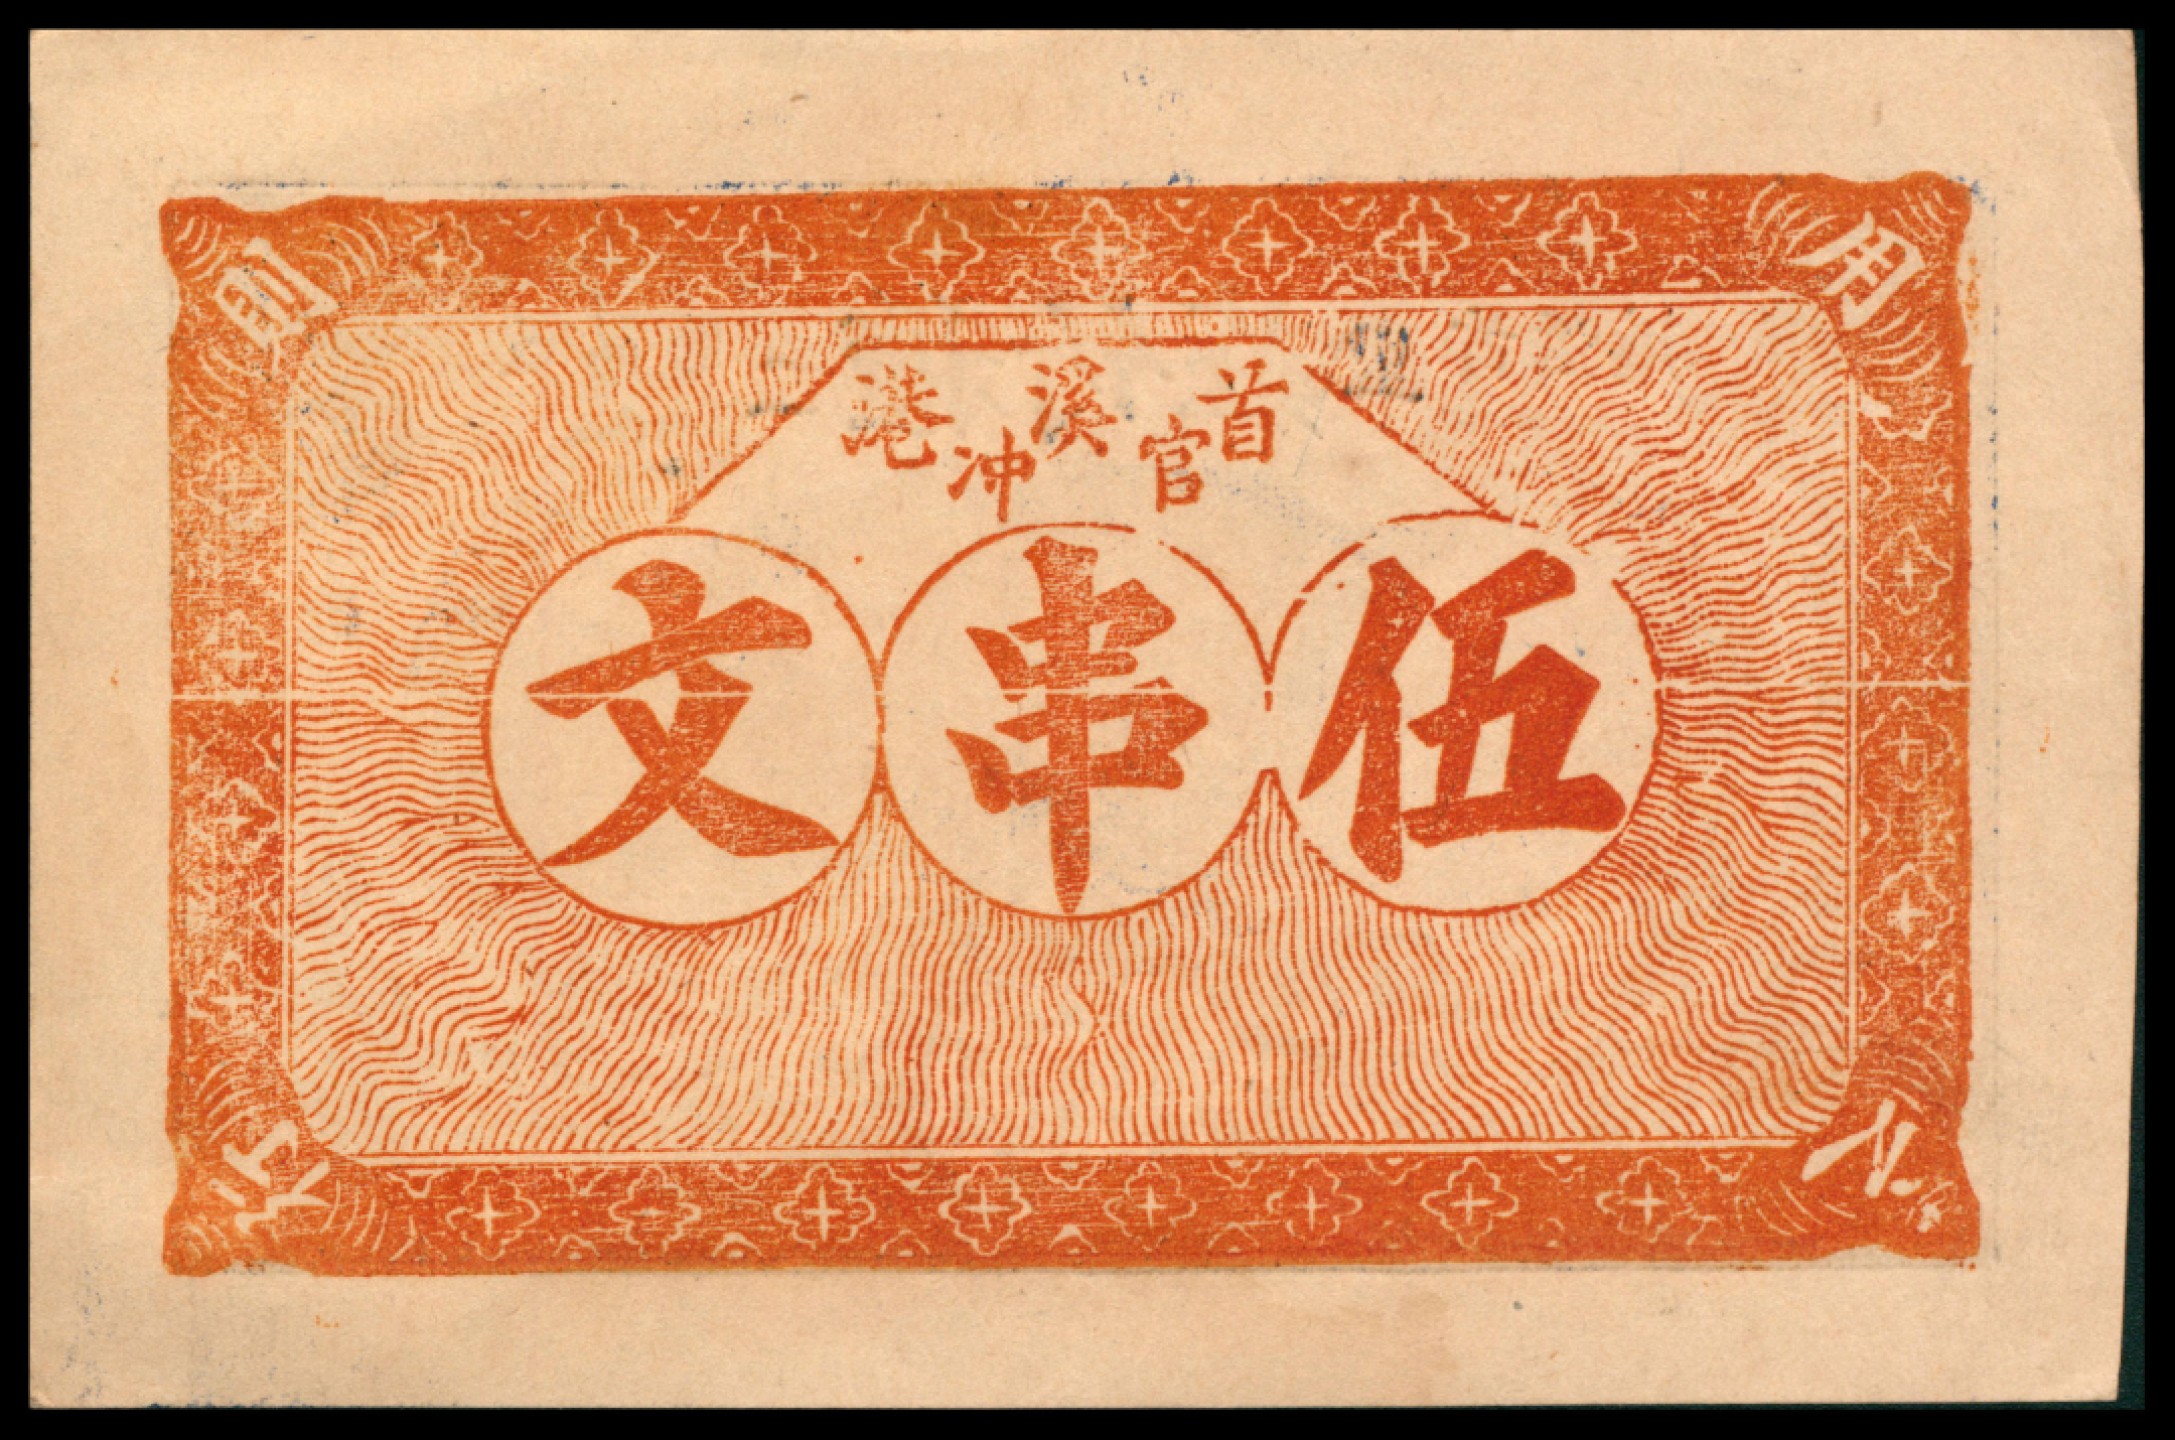 用
首官溪冲港
伍串文